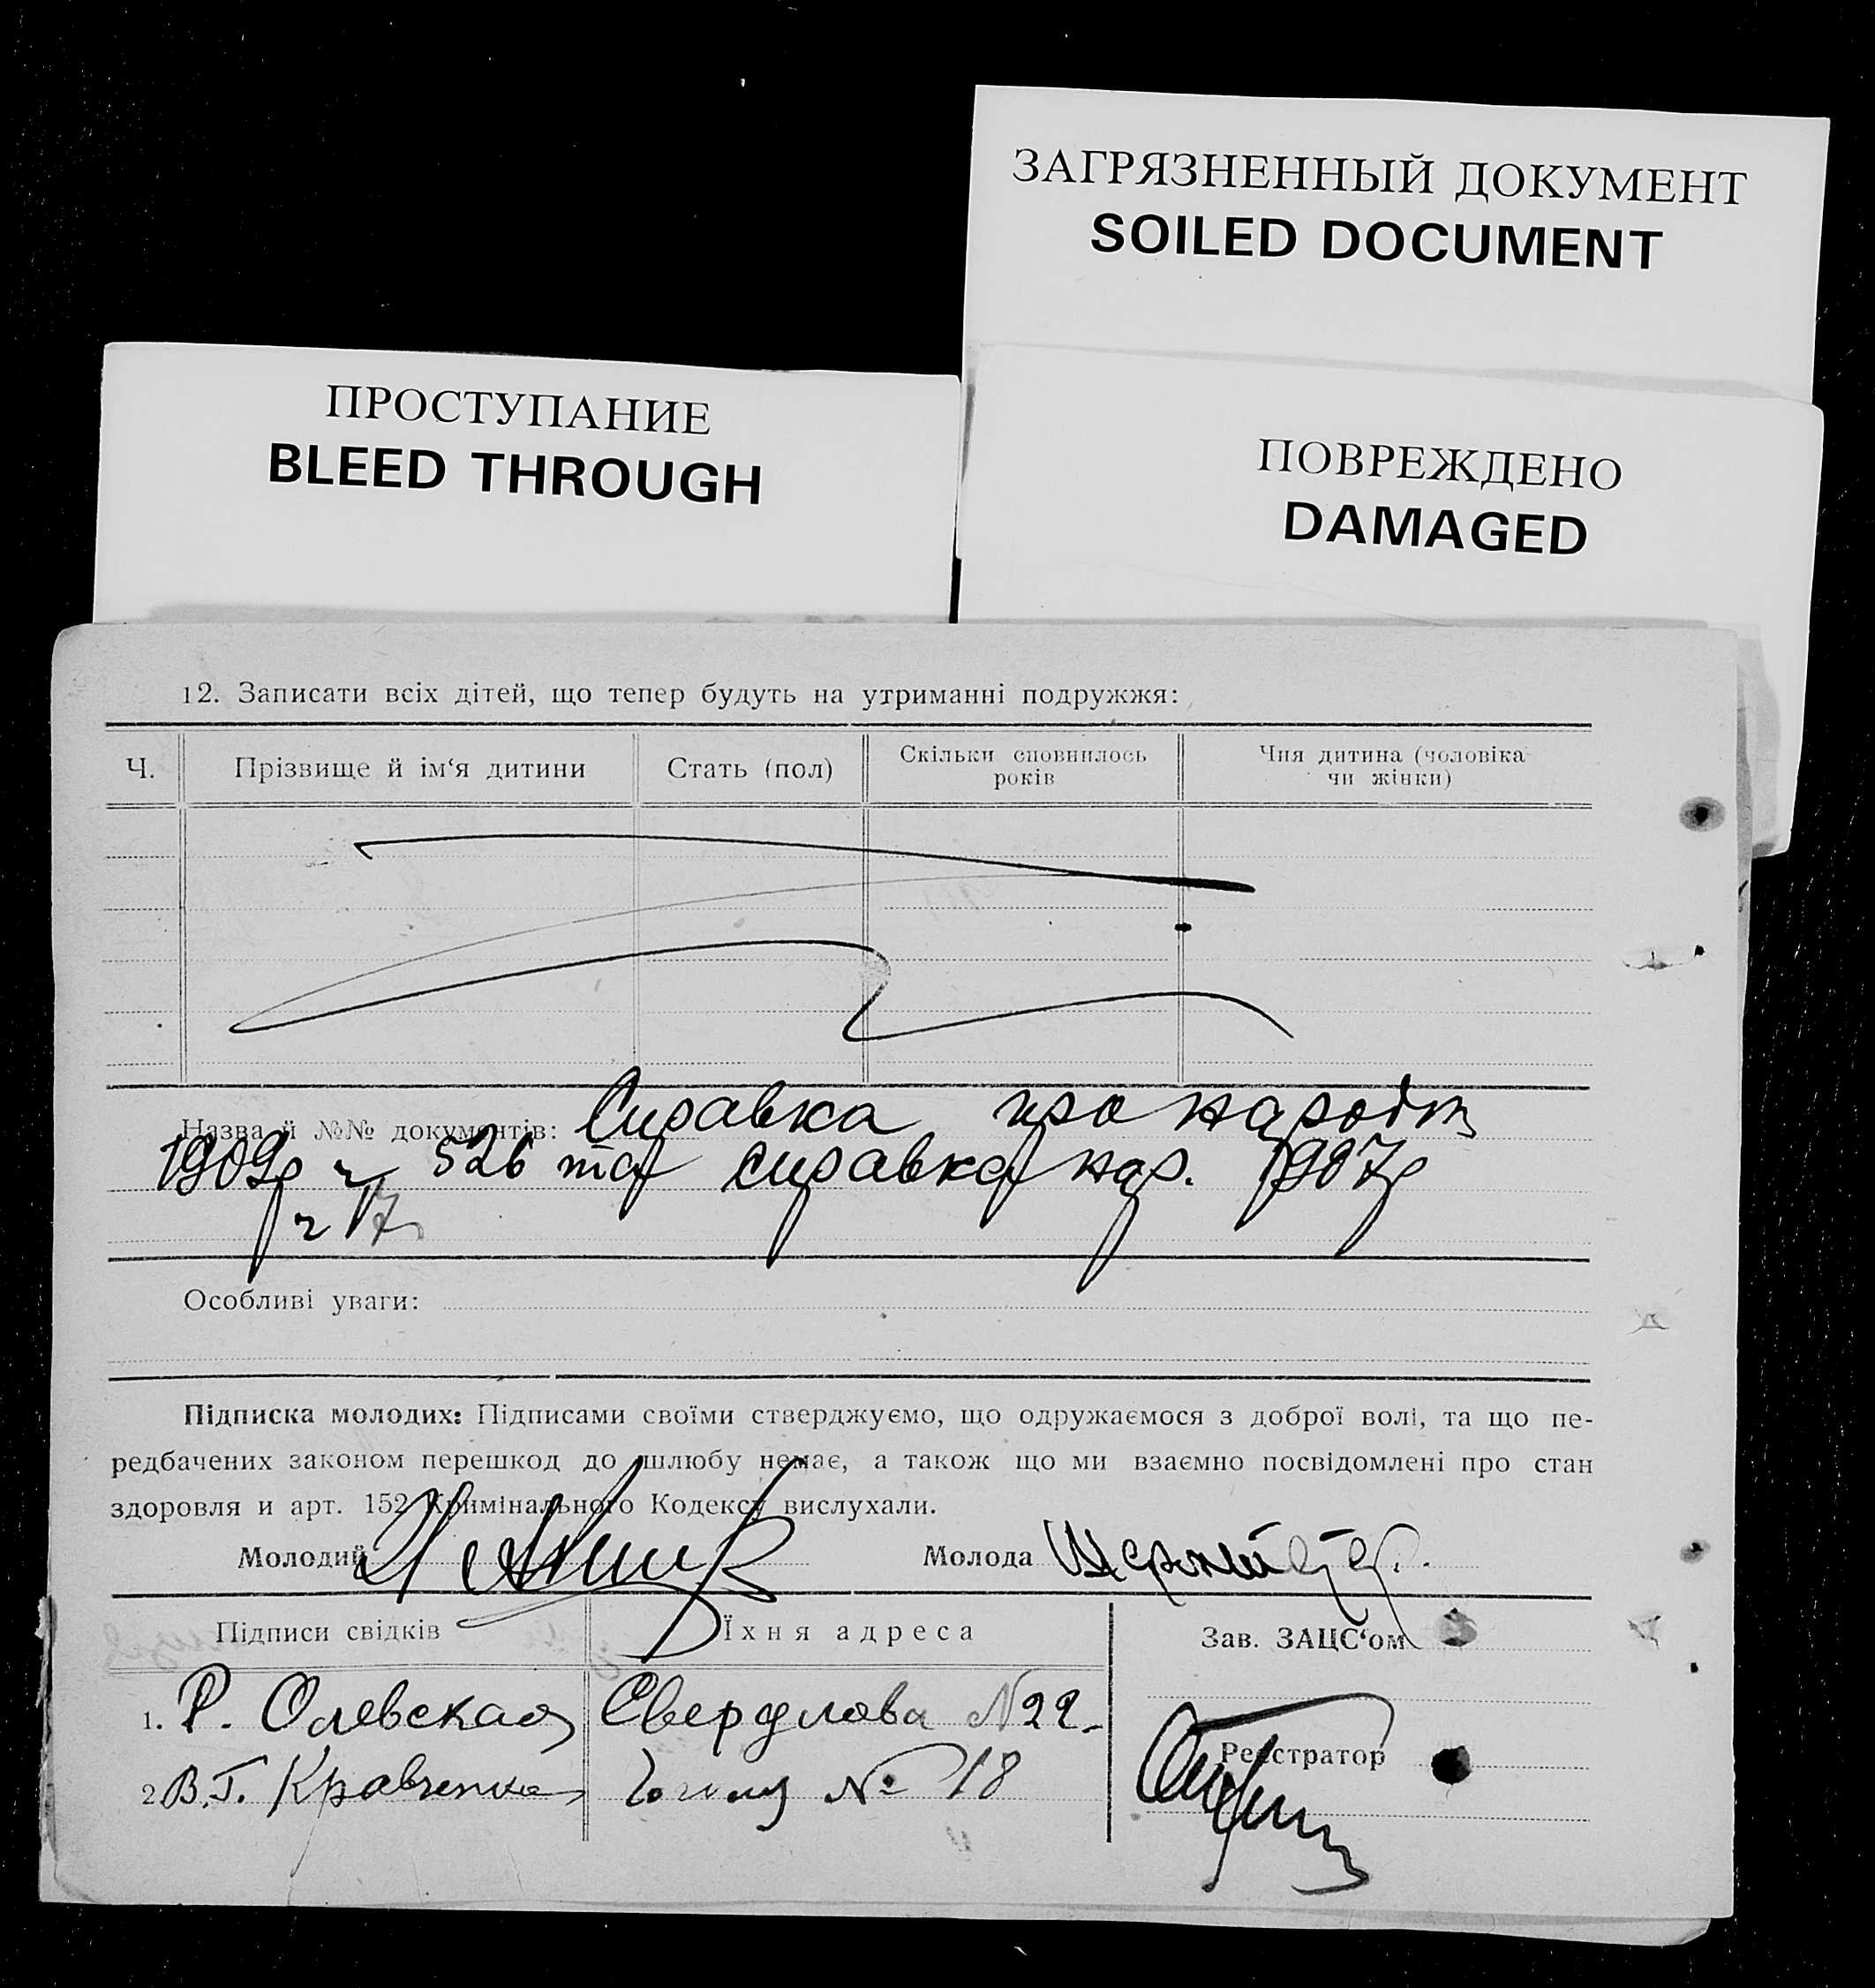 ЗАГРЯЗНЕННЫЙ ДОКУМЕНТ
SOILED DOCUMENT
ПРОСТУПАНИЕ
BLEED THROUGH
ПОВРЕЖДЕНО
DAMAGED
12. Записати всіх дітей, що тепер будуть на утриманні подружжя:
Ч. Прізвище й ім‘я дитини Стать (пол) Скільки сповнилось років Чия дитина (чоловіка чи жінки)
Назва й №№ документів: Справка про народж
1909р ч 526 та справка нар. 1907р
ч 17
Особливі уваги:
Підписка молодих: Підписами своїми стверджуємо, що одружаємося з доброї волі, та що пе-
редбачених законом перешкод до шлюбу немає, а також що ми взаємно посвідомлені про стан
здоровля и арт. 152 Кримінального Кодексу вислухали.
Молодий Молода
Підписи свідків Їхня адреса Зав. ЗАЦС‘ом
1. Р. Олевская Свердлова №22
Реєстратор
2. В.Г. Кравченко Гоголя № 18